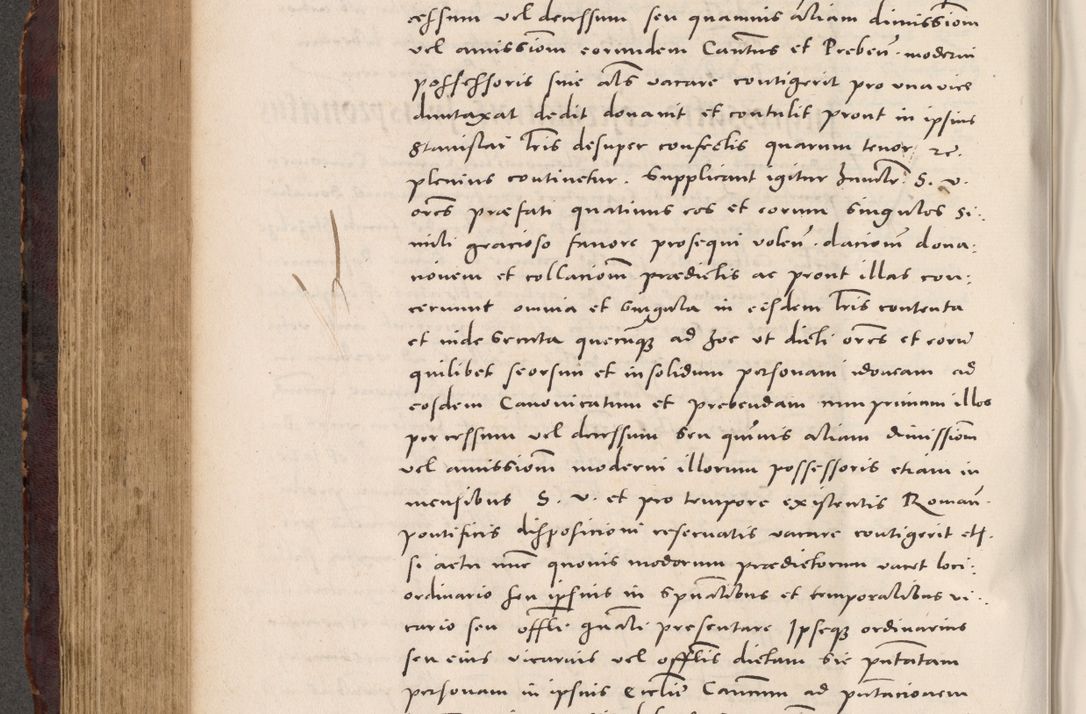 cessum vel decessum seu quamuis aliam dimissiom̄
vel amissiom̄ eorundem Canc̄tus et Prebeñ. moderni
possessoris siue al̄s vacare contigerit pro vna vice
duntaxat dedit donauit et contulit prout in ipsius
Stanislai l̄ris desuper confectis quarum tenor rc̄.
plenius continetur. Supplicant igitur S. v.
orēs præfati quatinus eos et eorum singulos si-
mili gracioso fauore prosequi voleñ. daciom̄ dona-
cionem et collaciom̄ prædictis ac prout illas con-
cernunt omnia et singula in eisdem l̄ris contenta
et inde secuta quecunq̄ꝫ ad hoc vt dicti orēs et eorū
quilibet seorsim et insolidum personam idoneam ad
eosdem Canonicatum et prebendam cum primum illos
per cessum vel decessum seu quīuis aliam dimissiom̄
vel amissiom̄ moderni illorum possessoris etiam in
mensibus S. v. et pro tempore existentis Romañ.
pontificis disposicioni reseruatis vacare contigerit et
si actu nūc quouis modorum prædictorum vacet loci
ordinario seu ipsius in spūalibus et temporalibus vi-
cario seu offīli gn̄ali presentare Ipseqꝫ ordinarius
seu eius vicarius vel offīlis dictam sic pn̄tatam
personam in ipsius Ecclīe Canc̄um ad pn̄tacionem